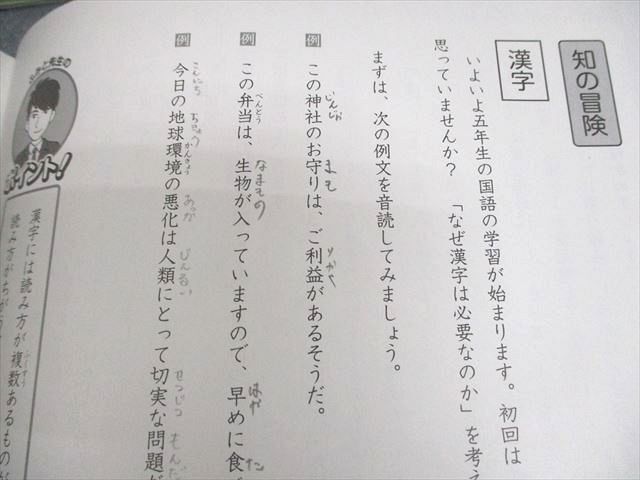 知の冒険
漢字
いよいよ五年生の国語の学習が始まります。初回は
思っていませんか？「なぜ漢字は必要なのか」を考え
まずは、次の例文を音読してみましょう。
じんじゃ まも りやく
例 この神社のお守りは、ご利益があるそうだ。
べんとう なまもの はや た
例 この弁当は、生物が入っていますので、早めに食べ
こんにち ちきゅう かんきょう あっか じんるい せつじつ もんだ
例 今日の地球環境の悪化は人類にとって切実な問題が
先生の
ポイント！
ふくすう
漢字には読み方が複数あるものが
読み方がちがう